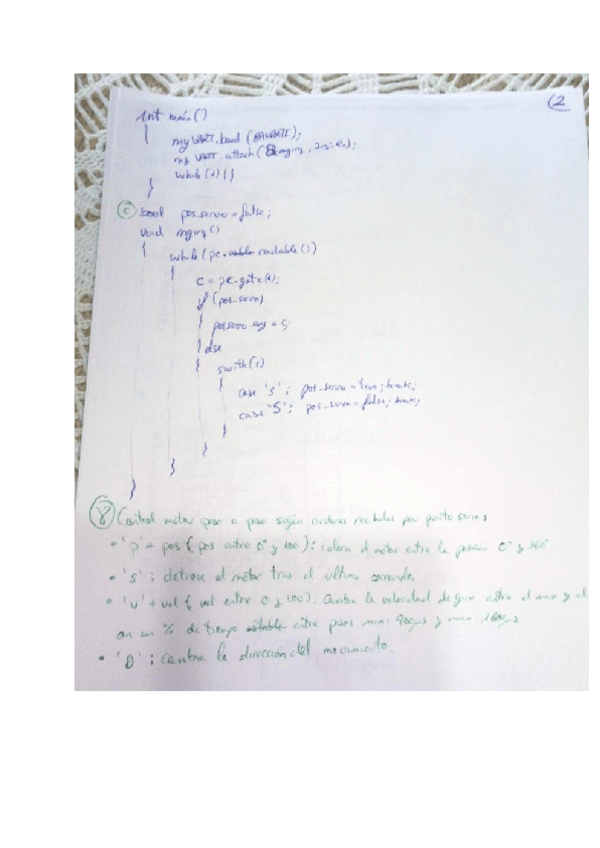 (2
int main()
{
my UART.baud (BAUDRATE);
my UART.attach(&myirq, );
while(1){}
}
(c) bool pos_servo = false;
void myirq()
{
while(pc.readable())
{
c = pc.getc();
if (pos_servo)
{
posservo = c;
} else
{ switch(c)
{
case 's': pos_servo = true; break;
case 'S': pos_servo = false; break;
}
}
}
}
(8) Control motor paso a paso según ordenes recibidas por puerto serie:
• 'p' + pos (pos entre 0° y 100): coloca el motor entre la posición 0° y 360°.
• 's': detiene el motor tras el último comando
• 'v' + vel (vel entre 0 y 100). Cambia la velocidad de giro entre el y el
en un % de tiempo entre pasos min: 900µs y
• 'D': cambia la dirección del movimiento.